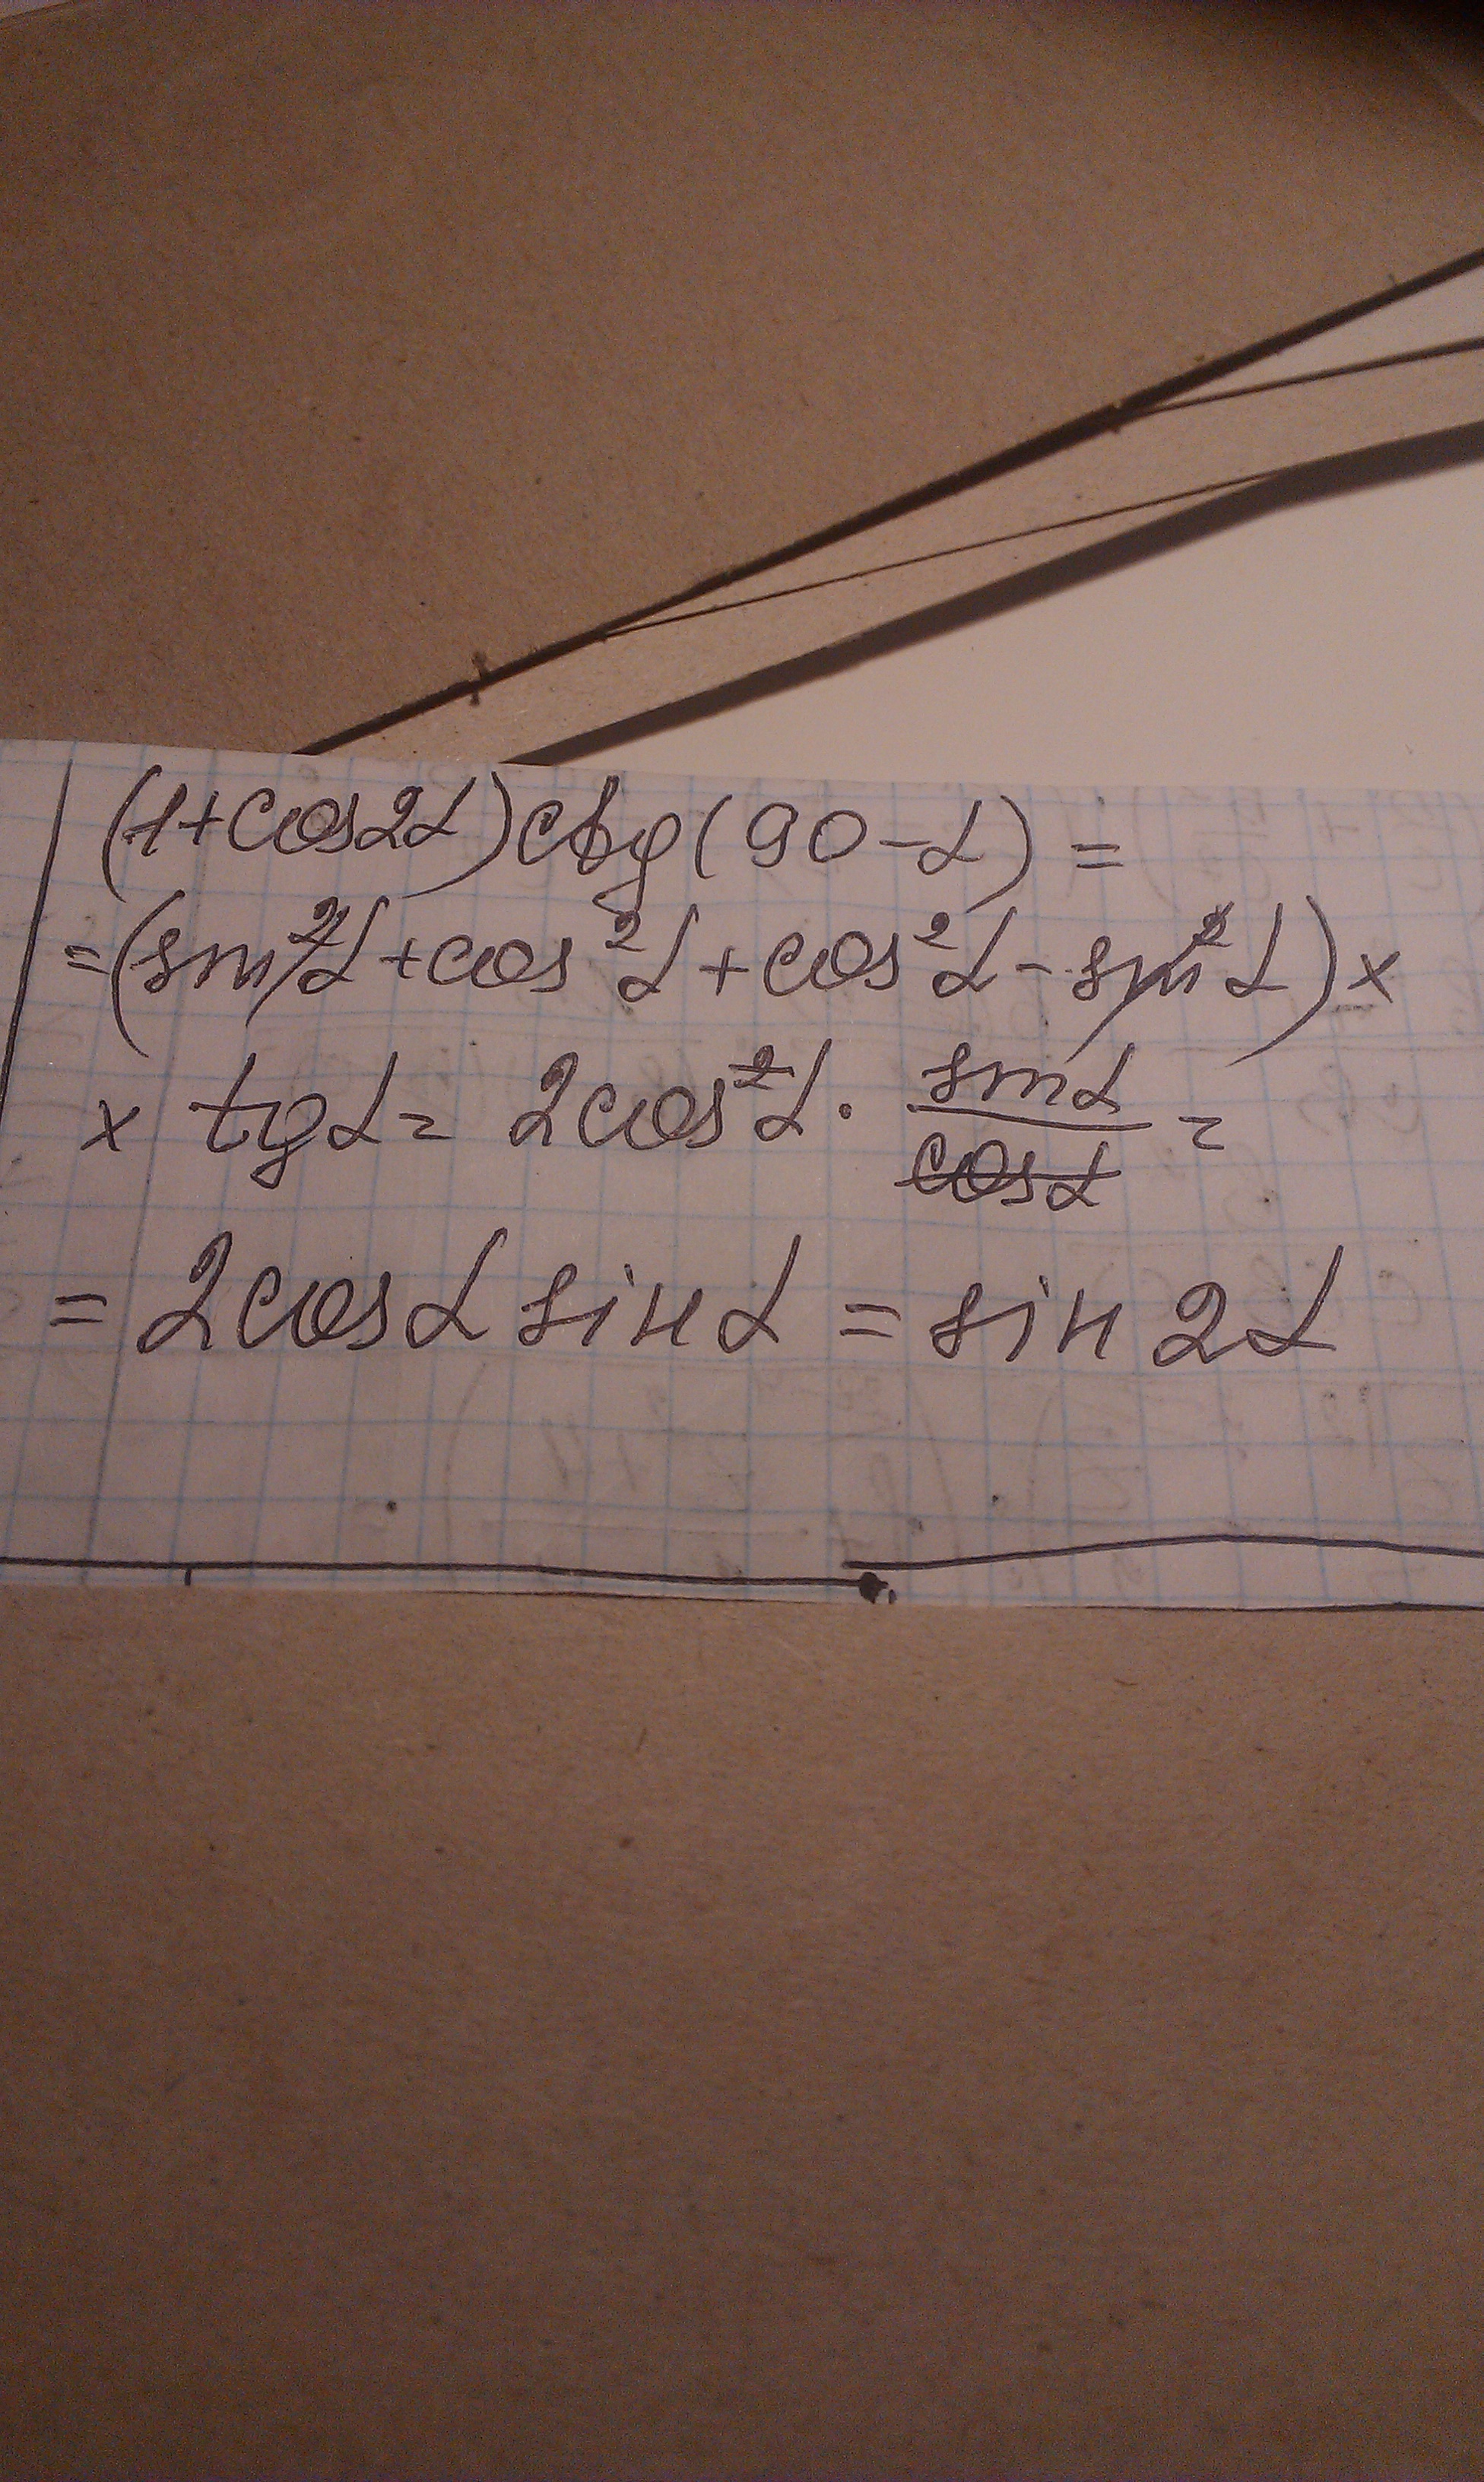 (1+cos2α)ctg(90-α)=
=(sin²α+cos²α+cos²α-sin²α)×
× tgα= 2cos²α · sinα/cosα =
= 2cosα sinα = sin 2α